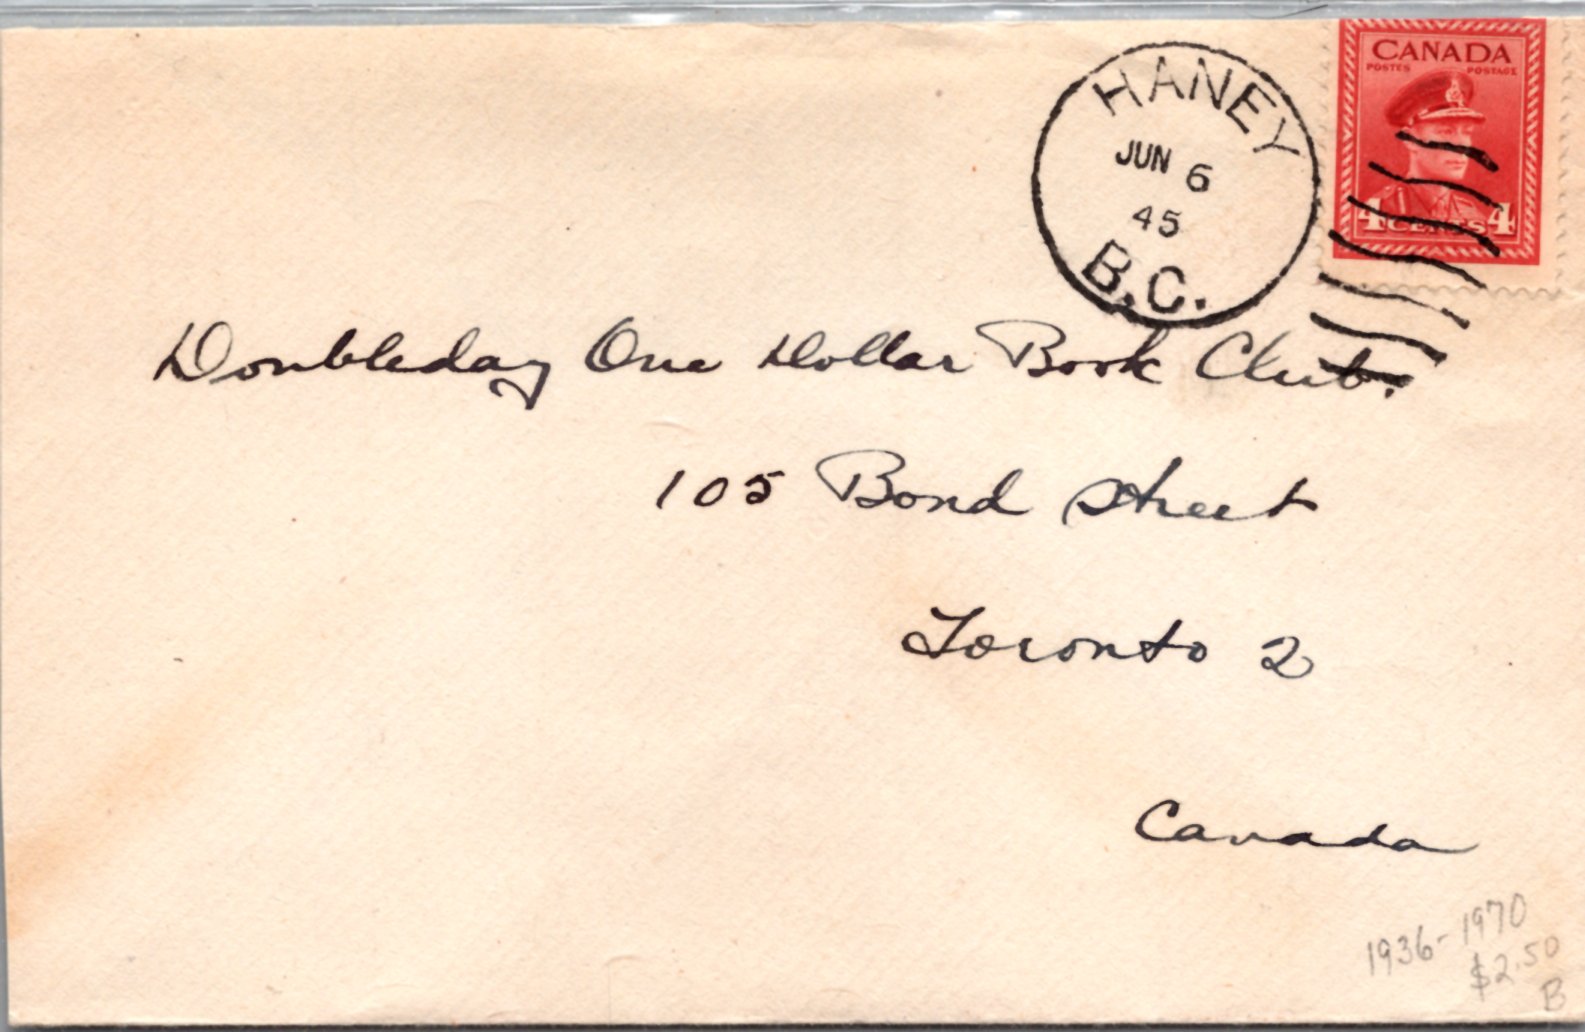 CANADA
POSTES POSTAGE
4 CENTS 4
HANEY
JUN 6
45
B.C.
Doubleday One Dollar Book Club.
105 Bond Street
Toronto 2
Canada
1936-1970
$2.50
B